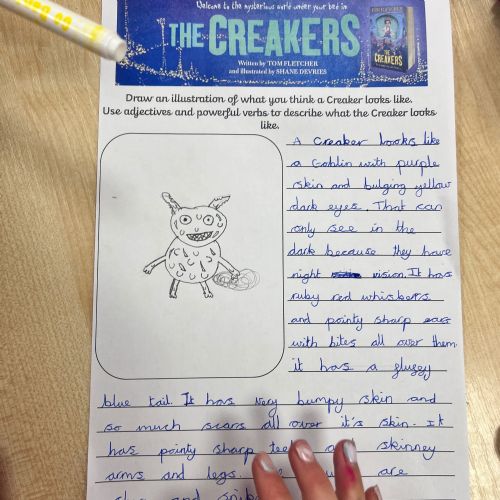 Welcome to the mysterious world under your bed in
THE CREAKERS
Written by TOM FLETCHER
and illustrated by SHANE DEVRIES
THE
CREAKERS
Draw an illustration of what you think a Creaker looks like.
Use adjectives and powerful verbs to describe what the Creaker looks
like.
A Creaker looks like
a Goblin with purple
skin and bulging yellow
dark eyes. That can
only see in the
dark because they have
night vision. It has
ruby red whisbers
and pointy sharp ears
with bites all over them
it has a fluggy
blue tail. It has very bumpy skin and
so much scars all over it's skin. It
has pointy sharp skinney
arms and legs. are
and